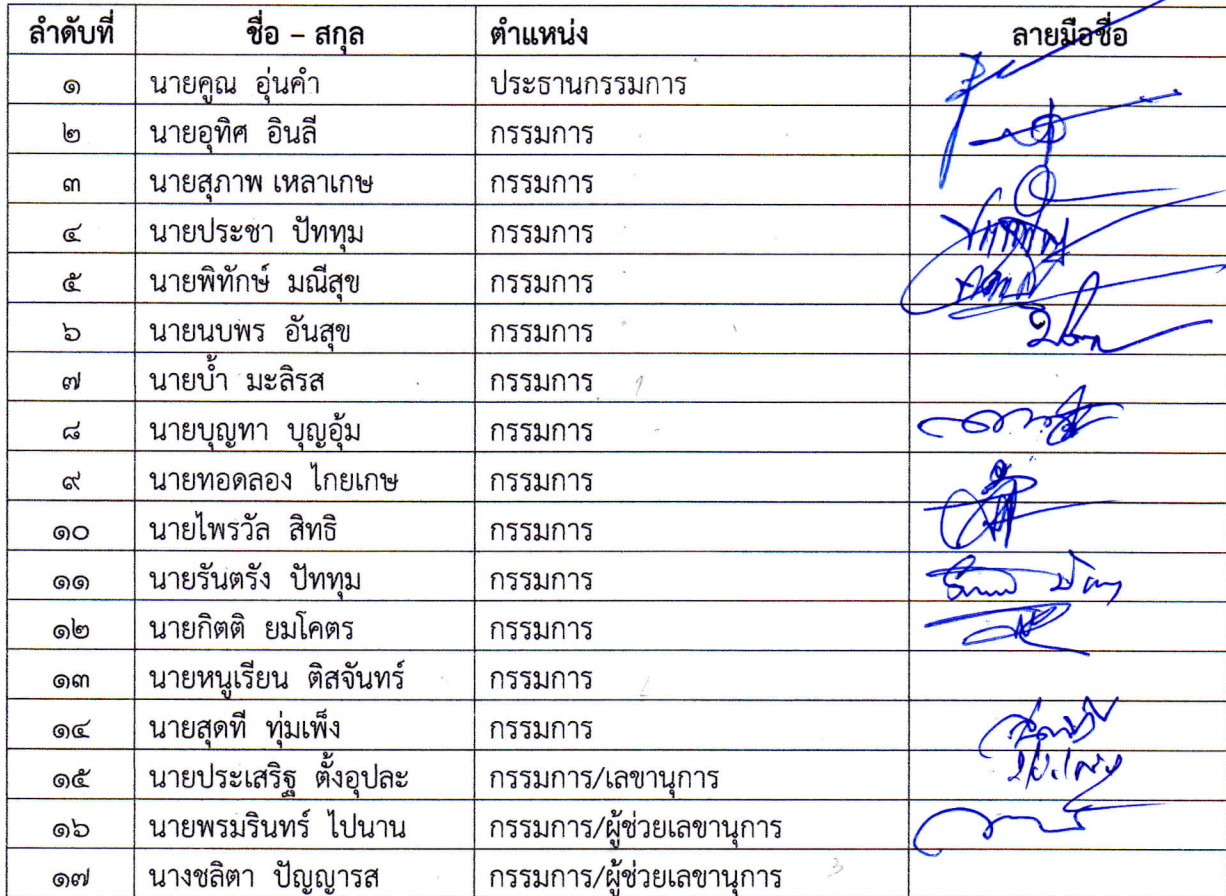 ลำดับที่ ชื่อ – สกุล ตำแหน่ง ลายมือชื่อ
๑ นายคูณ อุ่นคำ ประธานกรรมการ
๒ นายอุทิศ อินลี กรรมการ
๓ นายสุภาพ เหลาเกษ กรรมการ
๔ นายประชา ปัททุม กรรมการ
๕ นายพิทักษ์ มณีสุข กรรมการ
๖ นายนบพร อันสุข กรรมการ
๗ นายบ้ำ มะลิรส กรรมการ
๘ นายบุญทา บุญอุ้ม กรรมการ
๙ นายทอดลอง ไกยเกษ กรรมการ
๑๐ นายไพรวัล สิทธิ กรรมการ
๑๑ นายรันตรัง ปัททุม กรรมการ
๑๒ นายกิตติ ยมโคตร กรรมการ
๑๓ นายหนูเรียน ติสจันทร์ กรรมการ
๑๔ นายสุดที ทุ่มเพ็ง กรรมการ
๑๕ นายประเสริฐ ตั้งอุปละ กรรมการ/เลขานุการ
๑๖ นายพรมรินทร์ ไปนาน กรรมการ/ผู้ช่วยเลขานุการ
๑๗ นางชลิตา ปัญญารส กรรมการ/ผู้ช่วยเลขานุการ